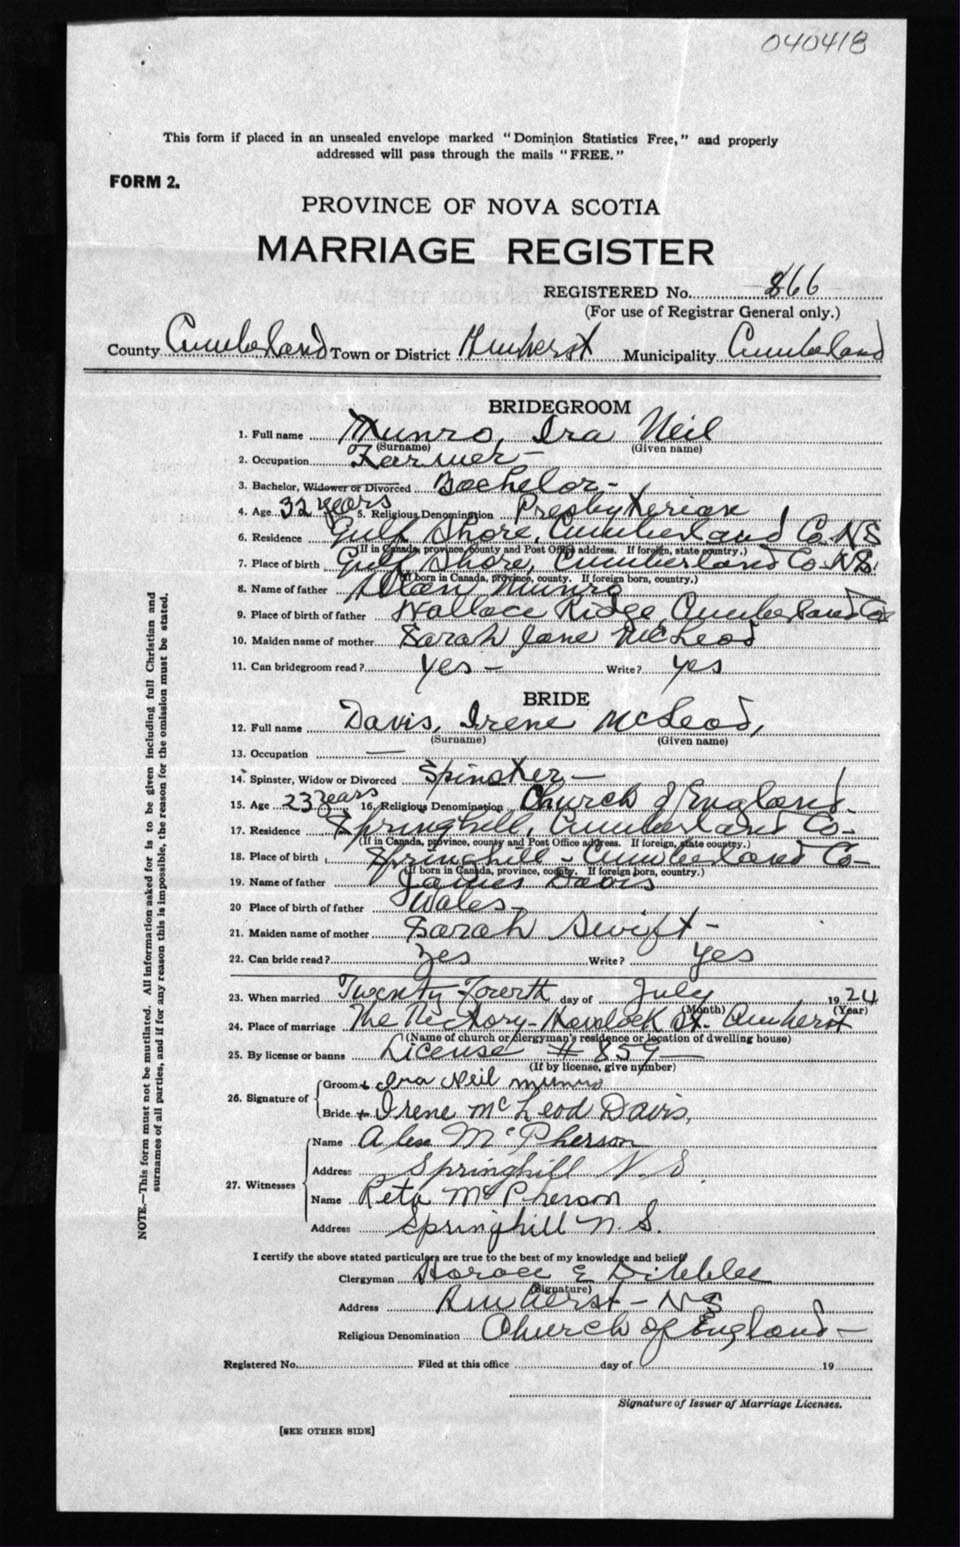 040418
This form if placed in an unsealed envelope marked "Dominion Statistics Free," and properly
addressed will pass through the mails "FREE."
FORM 2.
PROVINCE OF NOVA SCOTIA
MARRIAGE REGISTER
REGISTERED No. 866
(For use of Registrar General only.)
County Cumberland Town or District Amherst Municipality Cumberland
BRIDEGROOM
1. Full name Munro, Ira Neil
(Surname) (Given name)
2. Occupation Farmer -
3. Bachelor, Widower or Divorced Bachelor -
4. Age 32 years 5. Religious Denomination Presbyterian
6. Residence Gulf Shore, Cumberland Co. NS
(If in Canada, province, county and Post Office address. If foreign, state country.)
7. Place of birth Gulf Shore, Cumberland Co. NS.
(If born in Canada, province, county. If foreign born, country.)
8. Name of father Allan Munro
9. Place of birth of father Wallace Ridge, Cumberland Co
10. Maiden name of mother Sarah Jane McLeod
11. Can bridegroom read? yes - Write? yes
BRIDE
12. Full name Davis, Irene McLeod,
(Surname) (Given name)
13. Occupation —
14. Spinster, Widow or Divorced Spinster -
15. Age 23 years 16. Religious Denomination Church of England.
17. Residence Springhill, Cumberland Co -
(If in Canada, province, county and Post Office address. If foreign, state country.)
18. Place of birth Springhill - Cumberland Co -
(If born in Canada, province, county. If foreign born, country.)
19. Name of father James Davis
20 Place of birth of father Wales -
21. Maiden name of mother Sarah Swift -
22. Can bride read? Yes Write? Yes
23. When married Twenty-Fourth day of July 1924
(Month) (Year)
24. Place of marriage The Rectory - Havelock St. Amherst
(Name of church or clergyman's residence or location of dwelling house)
25. By license or banns License # 859 —
(If by license, give number)
26. Signature of
Groom Ira Neil Munro
Bride Irene McLeod Davis,
27. Witnesses
Name McPherson
Address Springhill N. S.
Name Reta McPherson
Address Springhill N. S.
I certify the above stated particulars are true to the best of my knowledge and belief
Clergyman Horace E Dibblee
(Signature)
Address Amherst - NS
Religious Denomination Church of England -
Registered No. Filed at this office day of 19
Signature of Issuer of Marriage Licenses.
[SEE OTHER SIDE]
NOTE.—This form must not be mutilated. All information asked for is to be given including full Christian and
surnames of all parties, and if for any reason this is impossible, the reason for the omission must be stated.